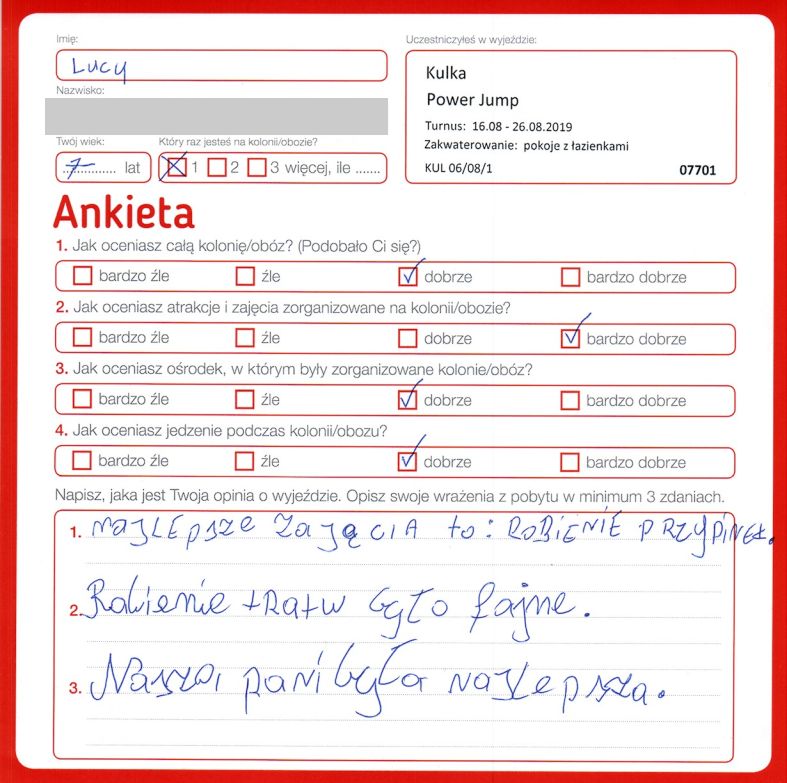 Imię:
Lucy
Nazwisko:
Twój wiek:
7 lat
Który raz jesteś na kolonii/obozie?
1 2 3 więcej, ile .......
Uczestniczyłeś w wyjeździe:
Kulka
Power Jump
Turnus: 16.08 - 26.08.2019
Zakwaterowanie: pokoje z łazienkami
KUL 06/08/1 07701
Ankieta
1. Jak oceniasz całą kolonię/obóz? (Podobało Ci się?)
bardzo źle źle dobrze bardzo dobrze
2. Jak oceniasz atrakcje i zajęcia zorganizowane na kolonii/obozie?
bardzo źle źle dobrze bardzo dobrze
3. Jak oceniasz ośrodek, w którym były zorganizowane kolonie/obóz?
bardzo źle źle dobrze bardzo dobrze
4. Jak oceniasz jedzenie podczas kolonii/obozu?
bardzo źle źle dobrze bardzo dobrze
Napisz, jaka jest Twoja opinia o wyjeździe. Opisz swoje wrażenia z pobytu w minimum 3 zdaniach.
1. NAJLEPSZE ZAJĘCIA to: ROBIENIE PRZYPINEK.
2. Robienie tratw było fajne.
3. Nasza pani była najlepsza.